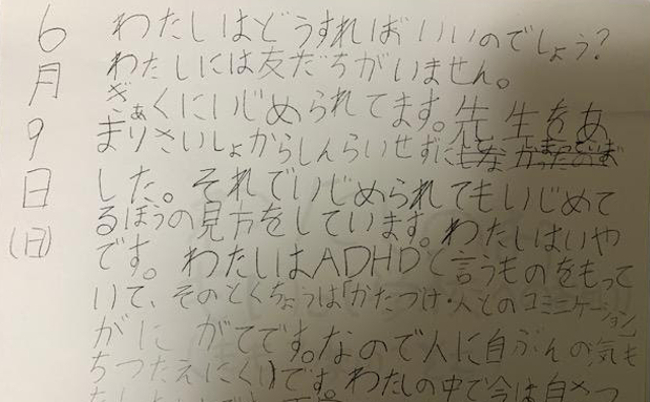 6月9日(日)
わたしはどうすればいいのでしょう?
わたしには友だちがいません。
ぎゃくにいじめられてます。先生をあ
まりさいしょからしんらいせずに
した。それでいじめられてもいじめて
るほうの見方をしています。わたしはいや
です。わたしはADHDと言うものをもって
いて、そのとくちょうは「かたづけ・人とのコミニケーション」
がにがてです。なので人に自ぶんの気も
ちつたえにくいです。わたしの中で今は自